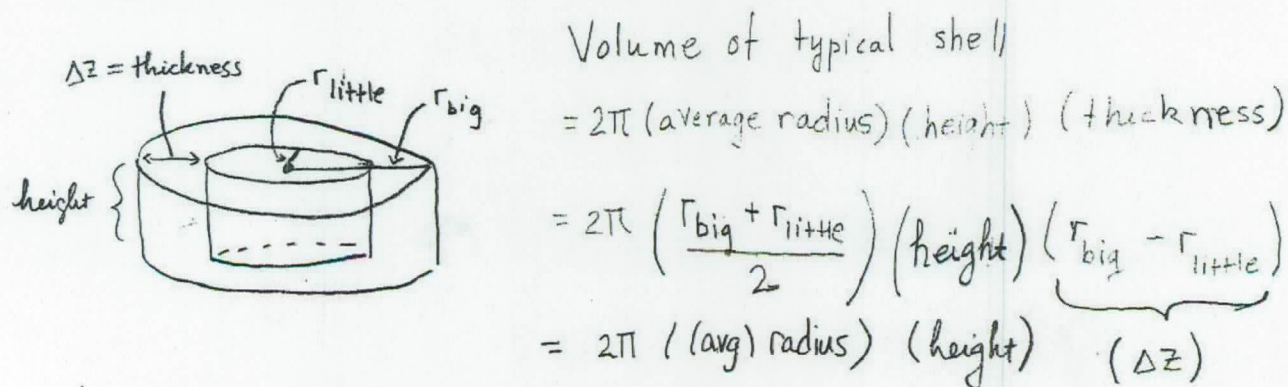 Δz = thickness
r little
r big
height
Volume of typical shell
= 2π (average radius) (height) (thickness)
= 2π ( (r big + r little) / 2 ) (height) (r big - r little)
= 2π ((avg) radius) (height) (Δz)